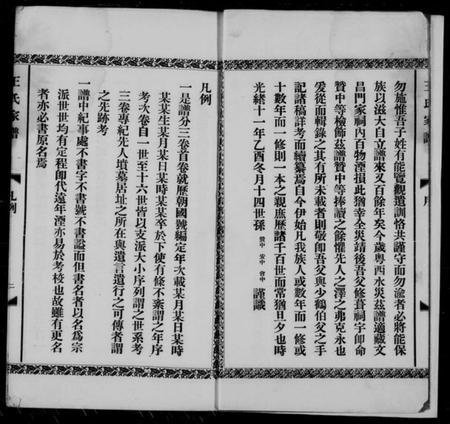 王氏家譜 序
勿施惟吾子姓有能覽觀遺訓恪共謹守而勿渝者必將能保
族以滋大自立譜來又百餘年矣今歲粵西水災茲譜適藏文
昌門家祠內百物湮損此猶幸全災靖後吾父修葺祠宇卽命
贊中等檢飾茲譜贊中等捧讀之餘懼先人之澤之弗克永也
爰從而輯錄之其有所未載者則敬卽吾父與少鶴伯父之手
記諸稿詳考而續纂焉自今伊始凡我族人或數年而一修或
十數年而一修則一本之親庶歷諸千百世而常猶旦夕也時
光緒十一年乙酉冬月十四世孫 贊中 宏中 會中 謹識
王氏家譜 凡例 一
凡例
一是譜分三卷首卷就歷朝國號編定年次載某月某日某時
某某生某月某日某時某某卒於下使有條不紊謂之年序
考次卷自一世至十六世皆以支派大小序列謂之世系考
三卷專紀先人墳墓居址之所在與遺言遺行之可傳者謂
之先跡考
一譜中紀事處不書字不書號不書諡而但書名者以名爲宗
派世世均有定程卽代遠年湮亦易於考核也故雖有更名
者亦必書原名焉